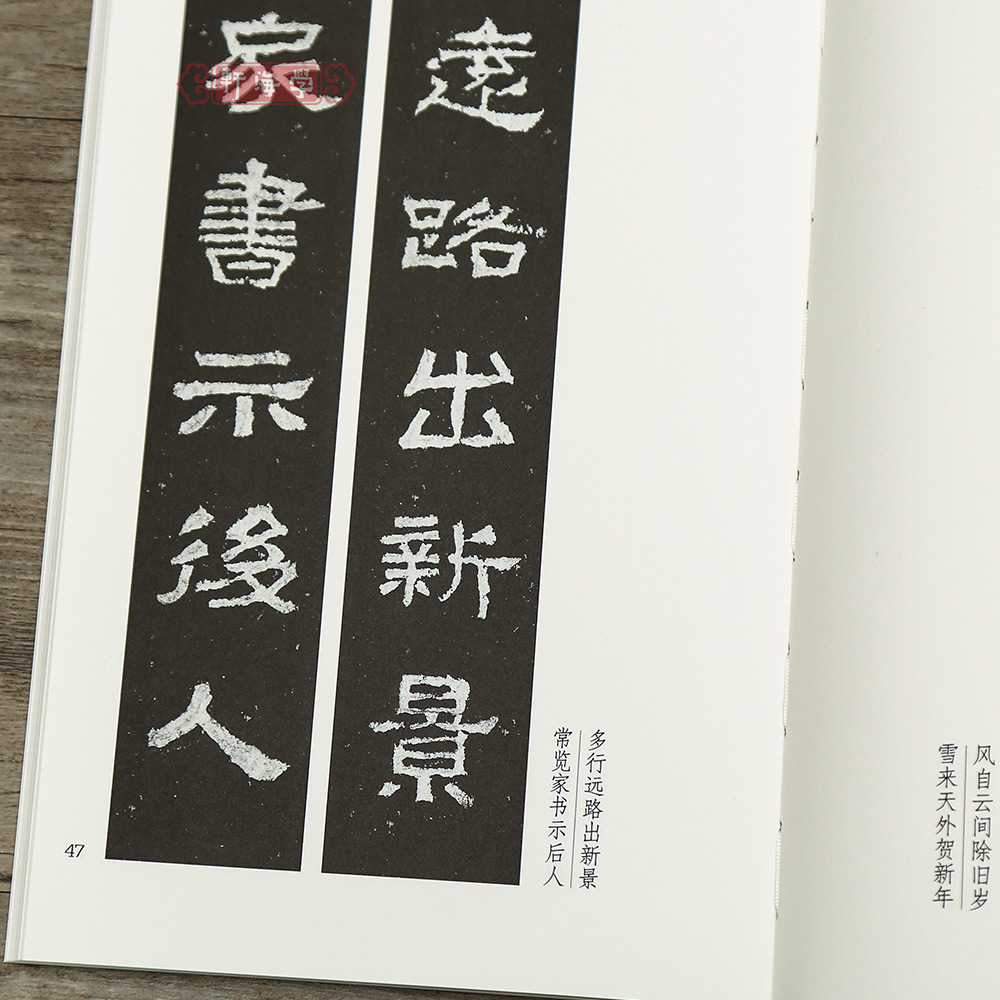 遠路出新景
家書示後人
多行远路出新景
常览家书示后人
47
风自云间除旧岁
雪来天外贺新年
轩海学